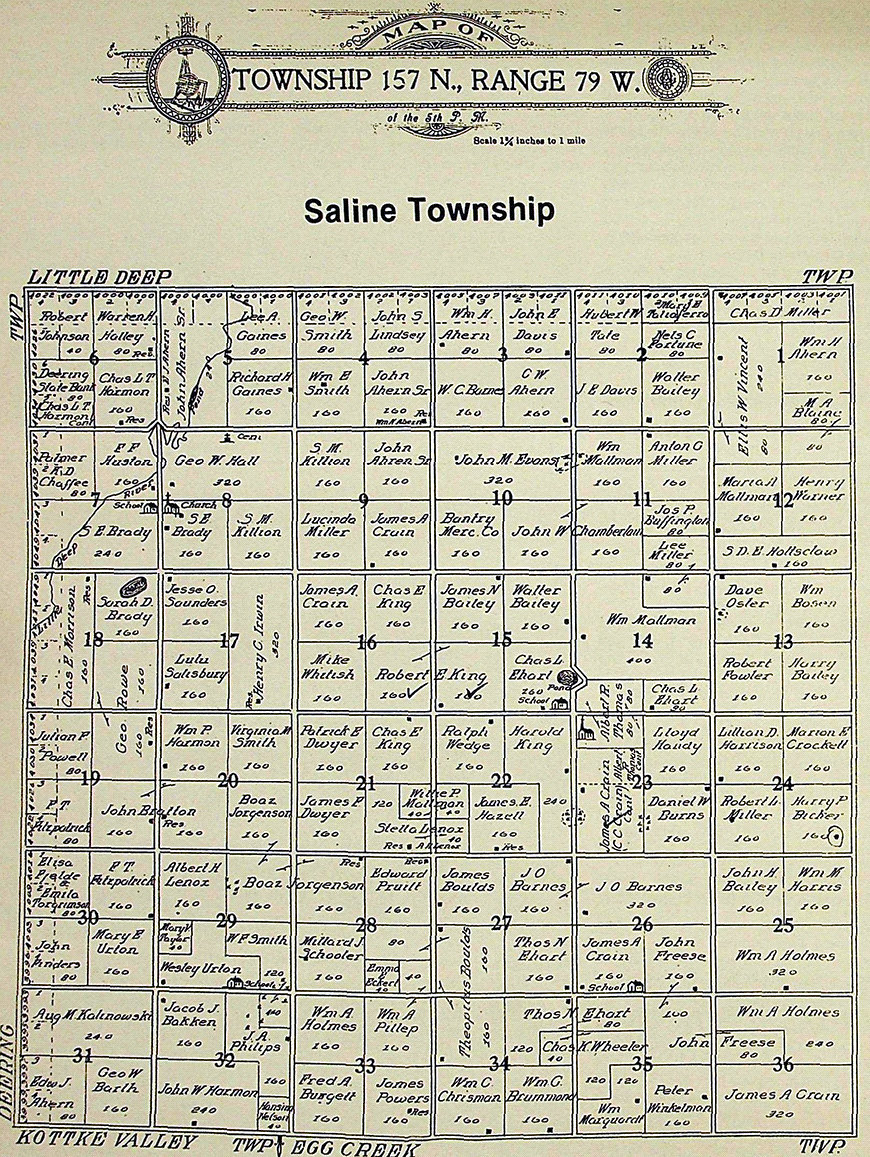 MAP OF
TOWNSHIP 157 N., RANGE 79 W.
of the 5th P. M.
Scale 1¾ inches to 1 mile
Saline Township
LITTLE DEEP
TWP
TWP
Robert Johnson 40
Warren H. Halley 80 Res
6
John Ahern Sr. 240
Pond
Lee A. Gaines 80
5
Geo. W. Smith 80
4
John S Lindsey 80
Wm H. Ahern 80
3
John E Davis 80
Hubert W Tate 80
2
Mary E Taliaferro
Nels C Fortune 80
Chas D Miller
1
Wm H Ahern 160
Deering State Bank 80
Chas L T Harmon Cont
Chas L T Harmon 160 Res
Richard H Gaines 160
Wm E Smith 160
John Ahern Sr 160 Res
Wm H Ahern
W. C. Barnes 160
C W Ahern 160
J E Davis 160
Walter Bailey 160
Ellis W Vincent 240
80
M A Blaine 80
80
Palmer & K D Chaffee 80
7
F F Huston 160
River
School
Cem
Geo W. Hall 320
Church
8
S. M. Killion 160
9
John Ahren Sr 160
John M. Evans 320
10
Wm Mallman 160
11
Anton G Miller 160
Maria A Mallman 160
12
Henry Warner 160
S E Brady 240
Deep
Little
S E Brady 160
S. M. Killion 160
Lucinda Miller 160
James A Crain 160
Bantry Merc. Co 160
John W Chamberlain 160 160
Jos P Buffington 80
Lee Miller 80
S. D. E Holtsclaw 160
Chas E Morrison 160 Res
18
Sarah D. Brady 160
Jesse O. Saunders 160
17
Henry C. Irwin 320 Res
James A. Crain 160
16
Chas E King 160
James N Bailey 160
15
Walter Bailey 160
80
Wm Mallman 400
14
Dave Osler 160
13
Wm Bosen 160
Geo. Rowe 160
160 Res
Lulu Salisbury 160
Mike Whitish 160
Robert E King 160 160
Chas L Ehart 160
Pond
School
Albert R. Thomas 80 80
Chas L Ehart 80
Robert Fowler 160
Harry Bailey 160
Julian F Powell 80
19
Wm P. Harmon 160
20
Virginia M Smith 160
Patrick E Dwyer 160
21
Chas E King 160
Ralph Wedge 160
22
Harold King 160
James A Crain
C C Crain
Albert R Thomas Cont
23
Lloyd Haudy 160
Lillian D. Harrison 160
24
Marion E Crockett 160
F T Fitzpatrick 80
John Bratton 160 160
Res
Boaz Jorgenson 160
James F Dwyer 160
120
Willie P. Mallman 40 40
Stella Lenox 160
Res
James. E. Hazell 160
Res
240
Daniel W Burns 160
Robert L. Miller 160
Harry P Bicker 160
Elisa Fjelde & Emila Torgrimsen 80
30
F T. Fitzpatrick 160
Albert H Lenox 160
29
Boaz Jorgenson 160 160
Res
28
Edward Pruitt 160
Res
James Boulds 160
27
J O Barnes 160
J O Barnes 320
26
John H Bailey 160
25
Wm M Harris 160
John Anders 80
Mary E Urton 160
Mary V Taylor 40
W F Smith 120
Wesley Urton
School
Millard J Schooler 160
80
Emma J Eckert 40
40
Theopilus Boulds 160
160
Thos N Ehart 160
James A Crain 160
School
John Freese 160
Wm A Holmes 320
Aug M. Kalinowski 240
31
Jacob J. Bakken 160
32
J. A Philips
160
Wm A Holmes 160
33
Wm A Pillep 160
34
Thos N Ehart 120 80
Chas K Wheeler 40
35
160
John Freese 80
Wm A Holmes 240
36
Edw J. Ahern 80
Geo W Barth 160
John W Harmon 240
Hansine Nelson 40
Fred A. Burgett 160
James Powers 160
Res
Wm C. Chrisman 160
Wm G. Brummond 160
120
120
Wm Marquardt
Peter Winkelman 160
James A Crain 320
DEERING
KOTTKE VALLEY
TWP
EGG CREEK
TWP.